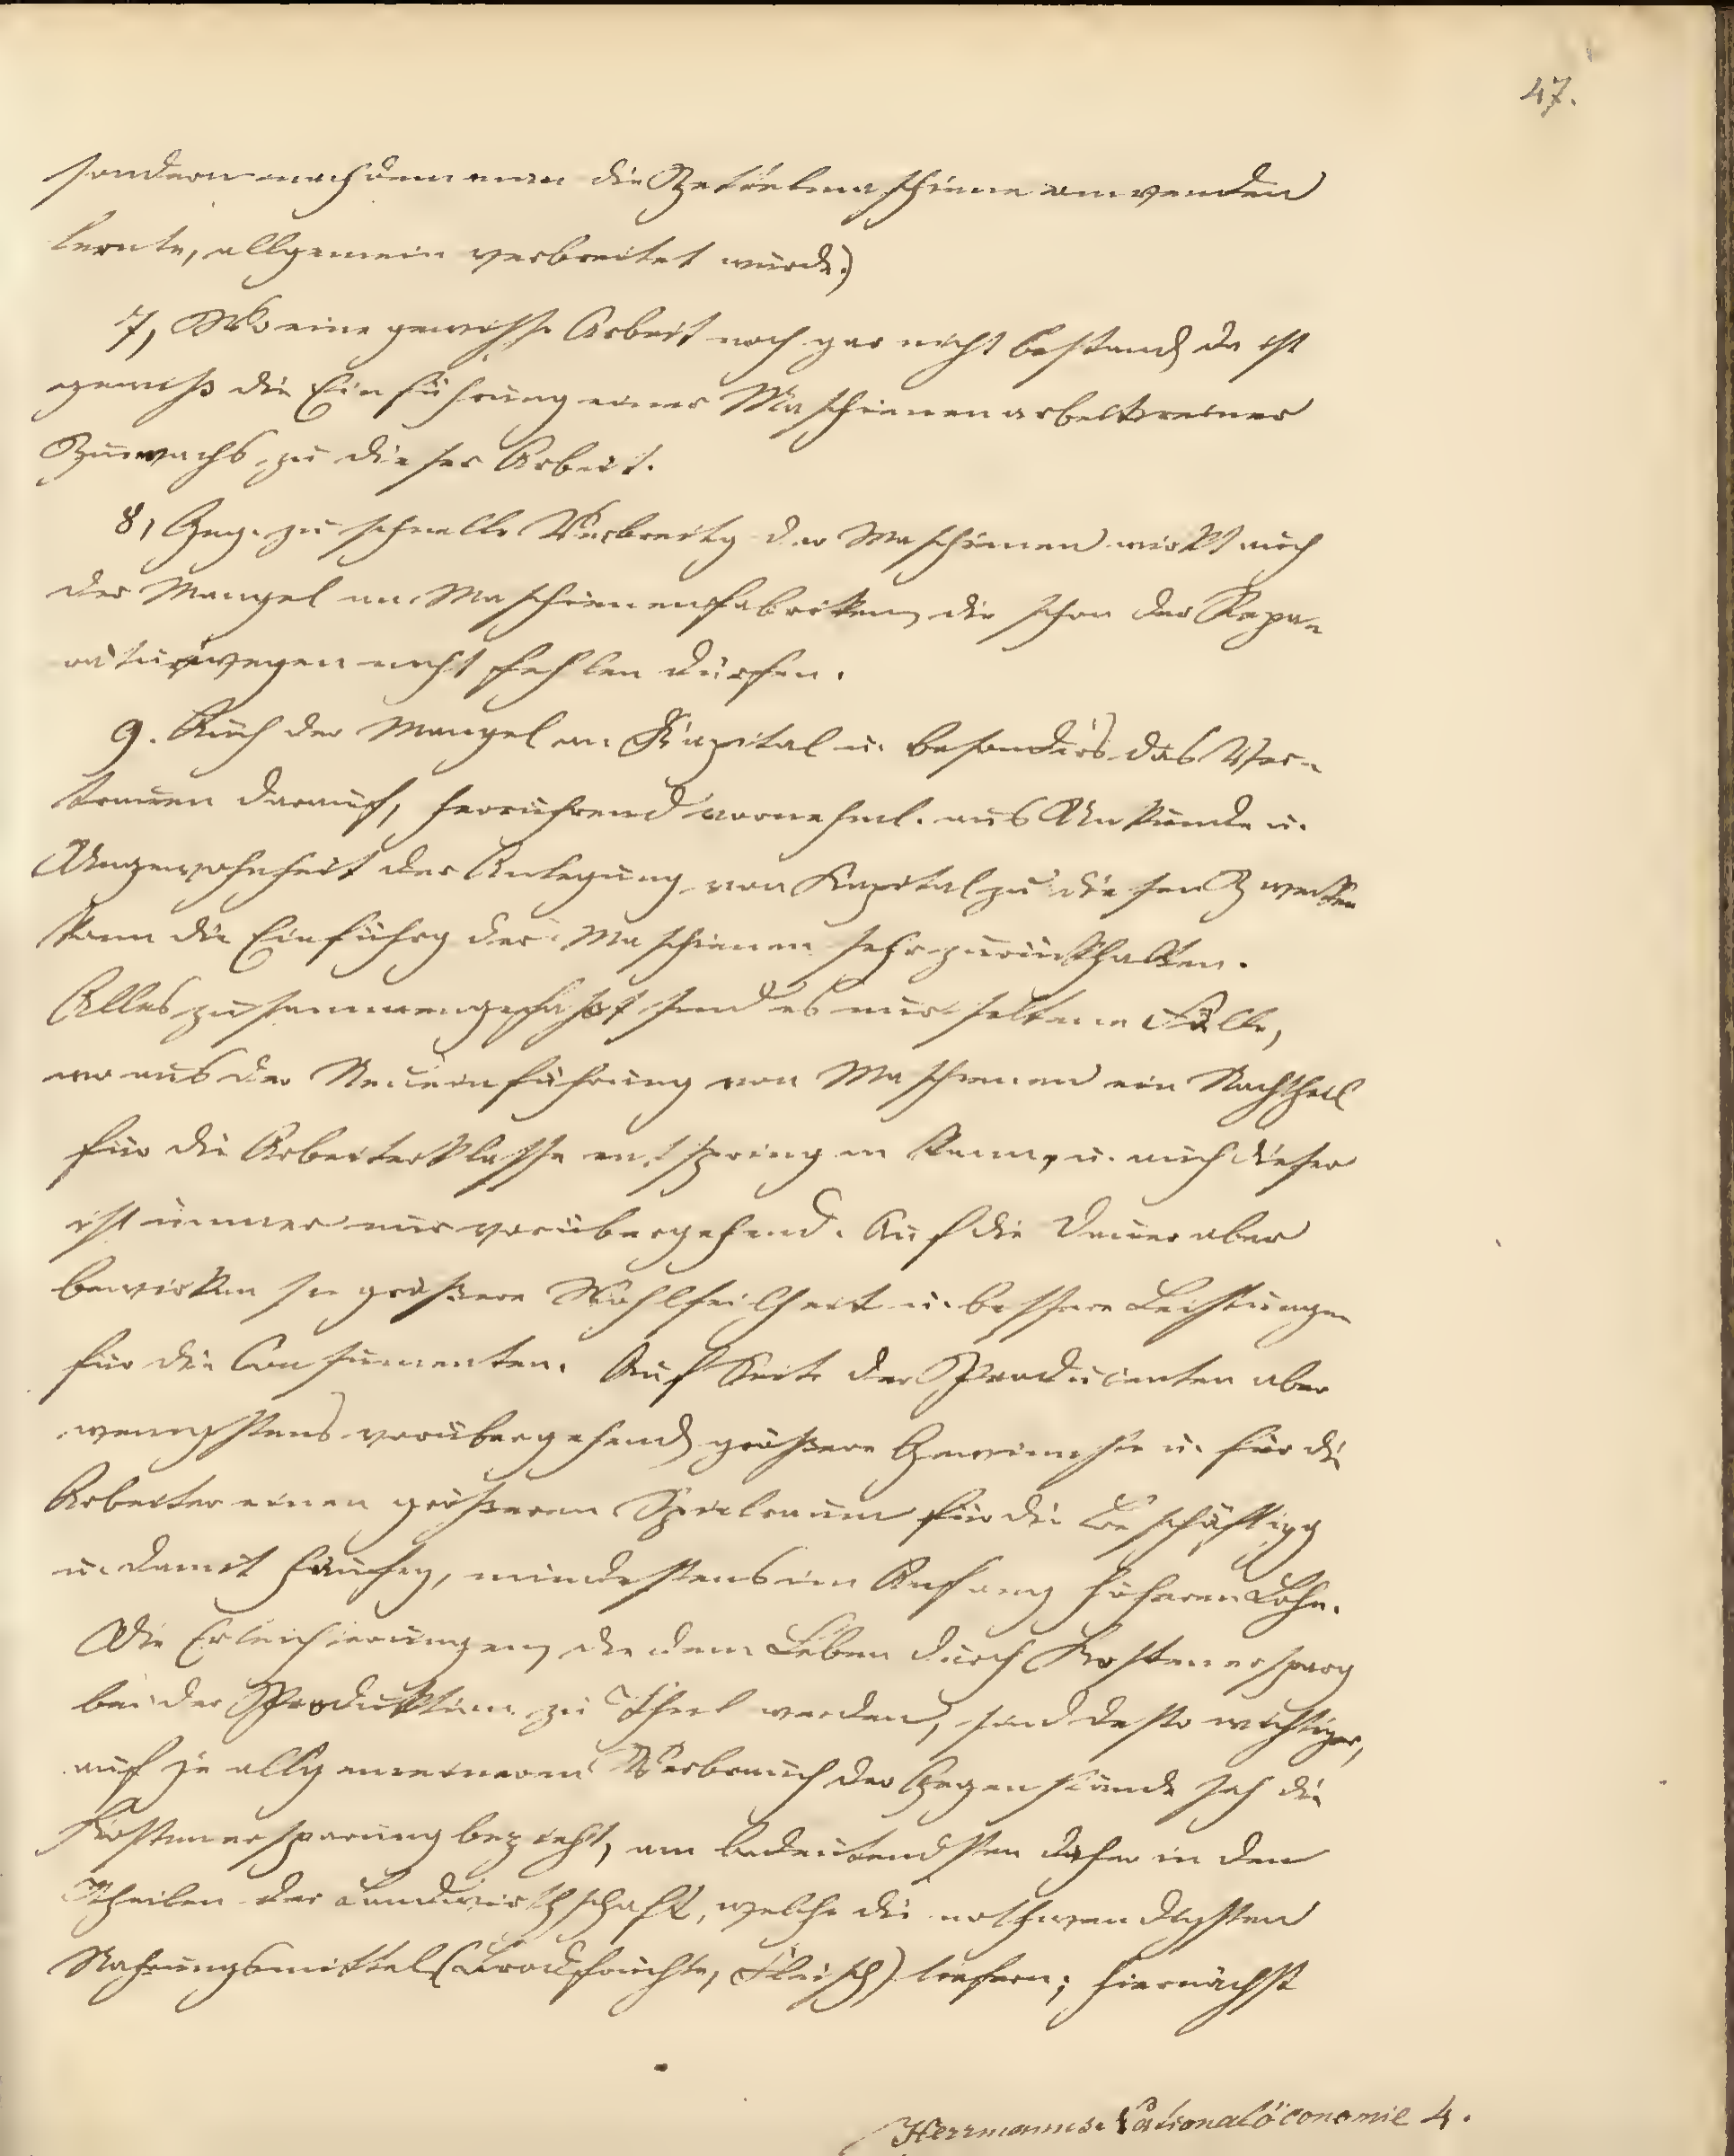 47.
sondern nachdem man die Bobbinetmaschine anwenden
lernte, allgemein verbreitet wurde.)
7, Wo eine gewisse Arbeit noch gar nicht bestand, da ist
gewiß die Einführung einer Maschienenarbeit reiner
Zuwachs zu dieser Arbeit.
8, Geg. zu schnelle Verbreitg der Maschienen wirkt auch
der Mangel an Maschienenfabriken, die schon der Repa-
raturwegen nicht fehlen dürfen.
9. Auch der Mangel an Kapital u. besonders das Ver-
trauen darauf, herrührend vornehml. aus Unkunde u.
Ungewohnheit der Anlegung von Kapital zu diesen Zwecken
kann die Einführg der Maschienen sehr zurückhalten.
Alles zusammengefaßt sind es nur seltene Fälle,
wo aus der Neueinführung von Maschienen ein Nachtheil
für die Arbeiterklasse entspringen kann, u. auch dieser
ist immer nur vorübergehend. Auf die Dauer aber
bewirken sie größere Wohlfeilheit u. bessere Leistungen
für die Consumenten. Auf Seite der Producenten aber
wenigstens vorübergehend größere Gewinnste u. für die
Arbeiter einen größeren Spielraum für die Beschäftigg
u. damit häufig, mindestens im Anfang höheren Lohn.
Die Erleichterungen, die dem Leben durch Kostenersparg
bei der Produktion zu Theil werden, sind desto wichtiger,
auf je allgemeineren Verbrauch der Gegenstände sich die
Kostenersparung bezieht, am bedeutendsten daher in den
Theilen der Landwirthschaft, welche die nothwendigsten
Nahrungsmittel (Brodfrüchte, Fleisch) liefern; hiernächst
Herrmanns. Nationalöconomie 4.